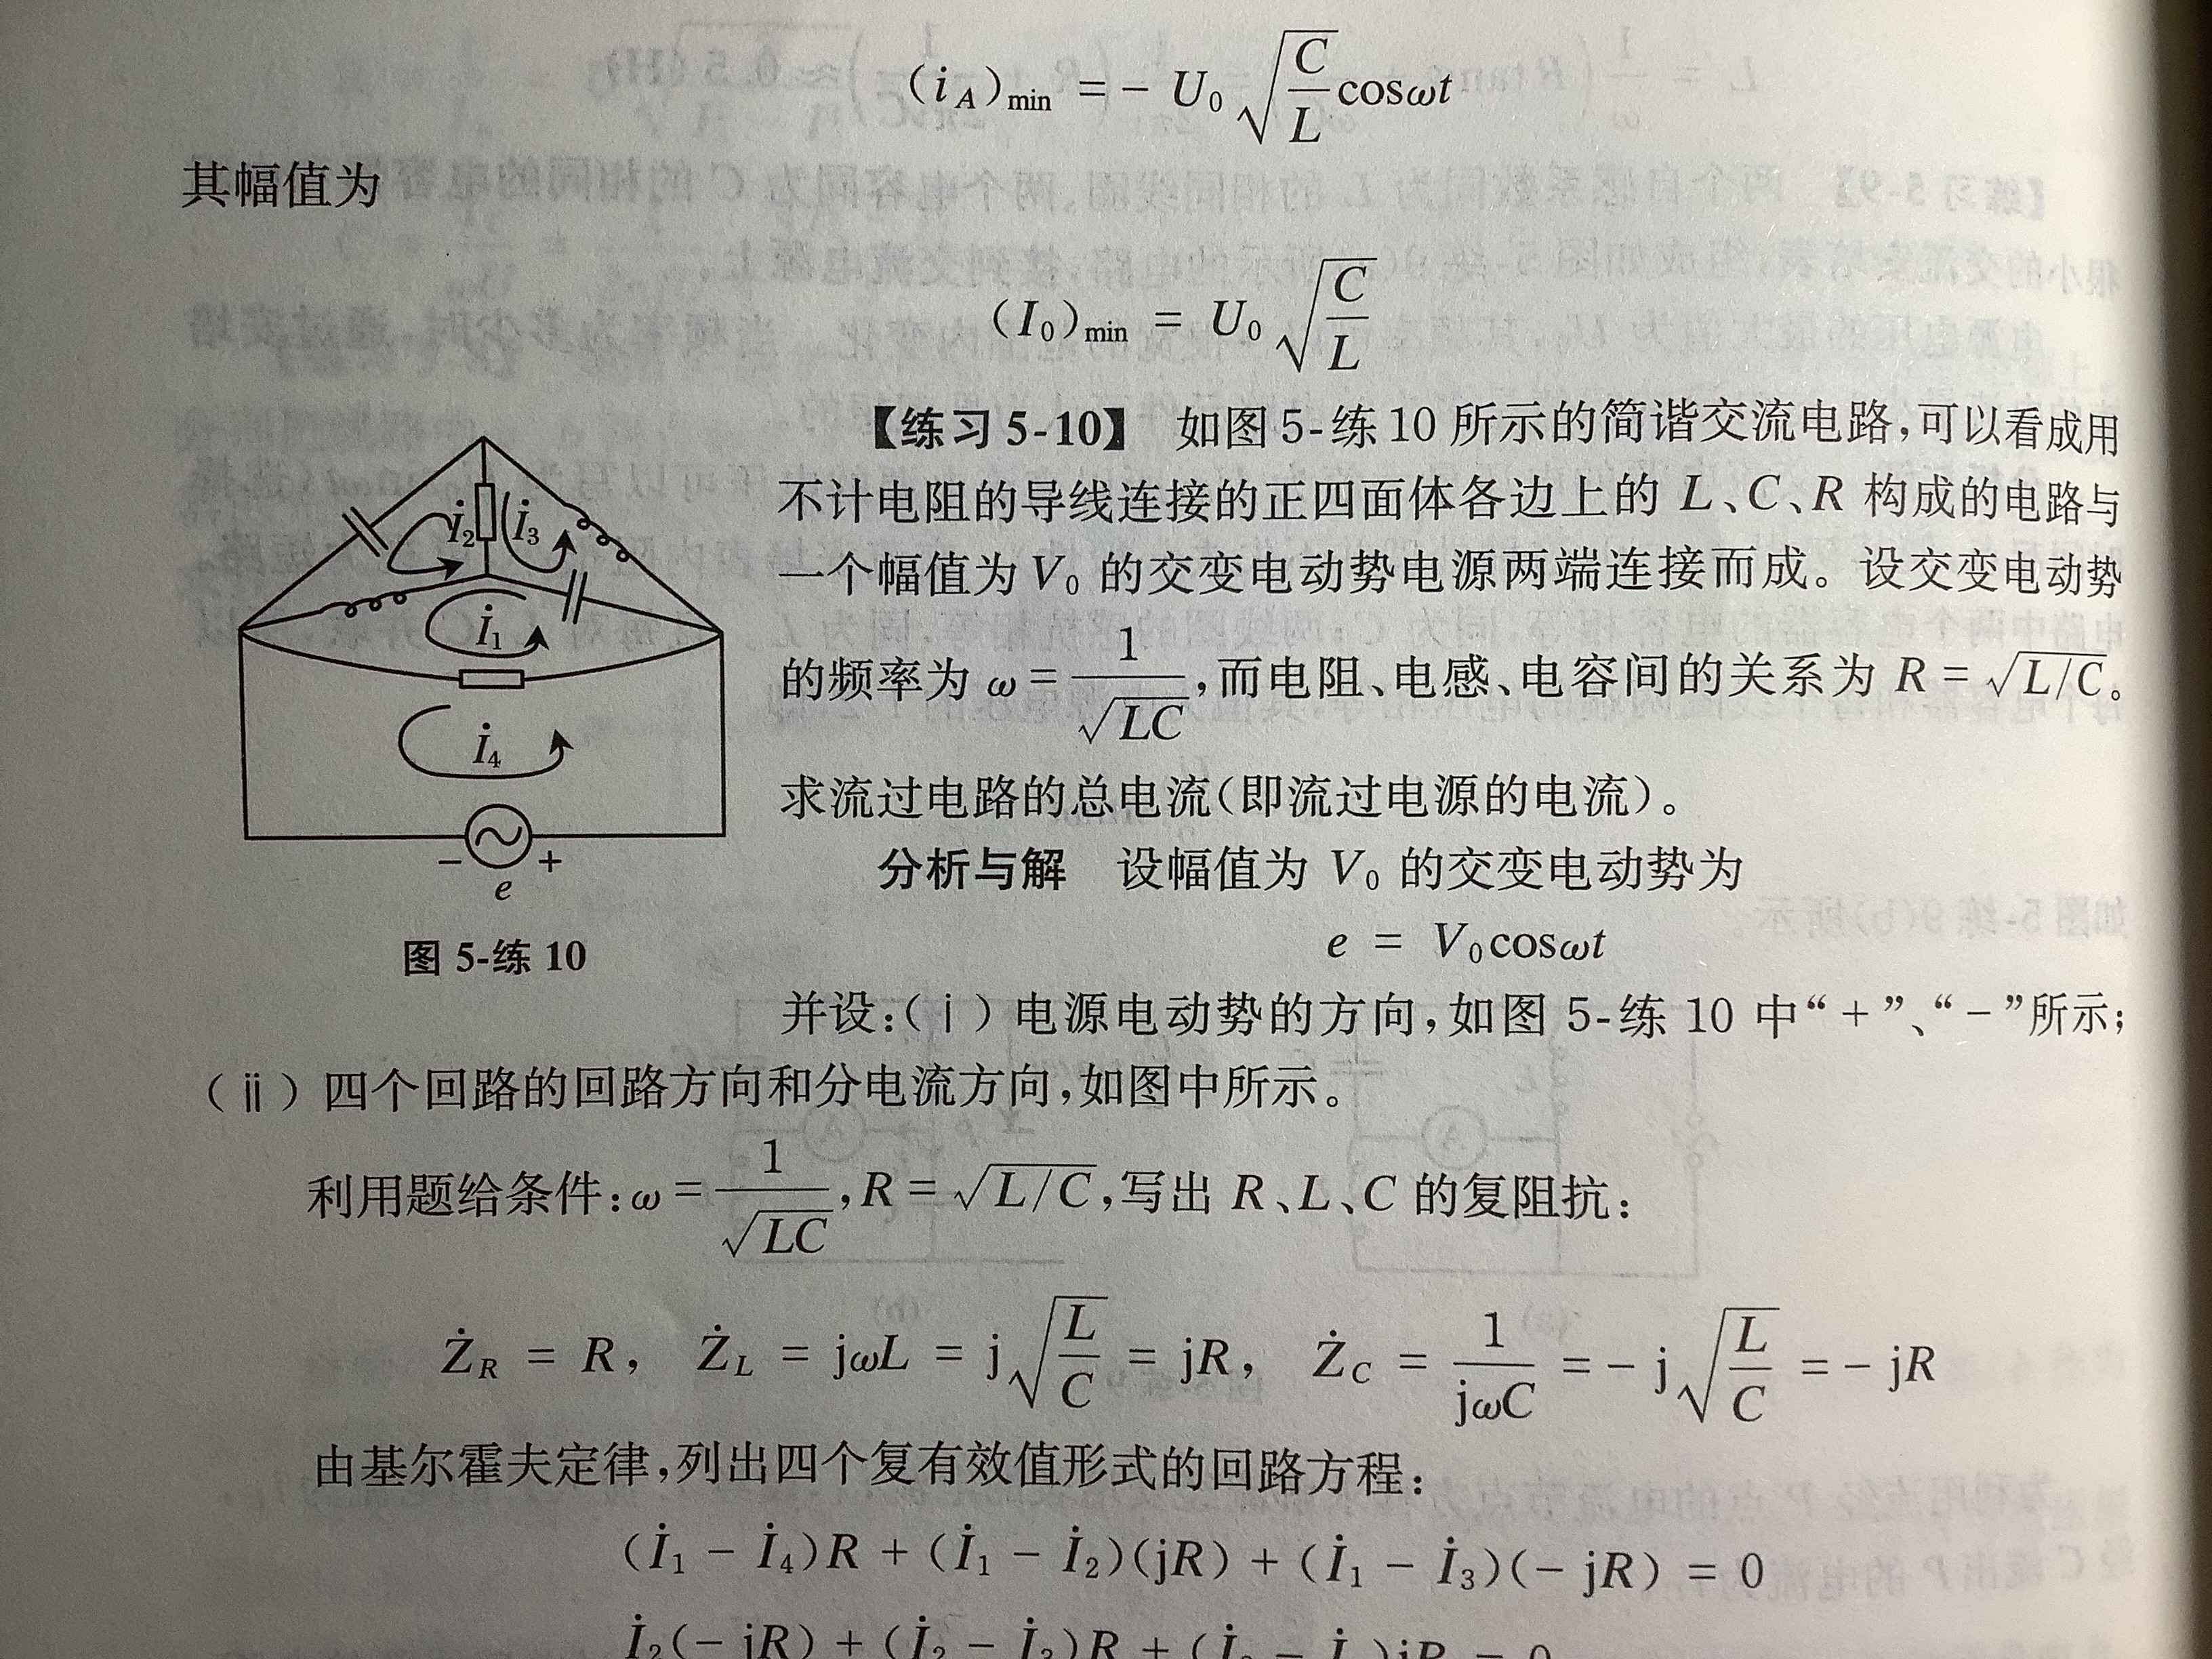 (i_A)_min = − U₀ √(C/L) cosωt
其幅值为
(I₀)_min = U₀ √(C/L)
【练习 5-10】 如图 5-练 10 所示的简谐交流电路,可以看成用
不计电阻的导线连接的正四面体各边上的 L、C、R 构成的电路与
一个幅值为 V₀ 的交变电动势电源两端连接而成。设交变电动势
的频率为 ω = 1/√(LC),而电阻、电感、电容间的关系为 R = √(L/C)。
求流过电路的总电流(即流过电源的电流)。
İ₂ İ₃
İ₁
İ₄
− +
e
图 5-练 10
分析与解 设幅值为 V₀ 的交变电动势为
e = V₀cosωt
并设:(ⅰ)电源电动势的方向,如图 5-练 10 中“+”、“−”所示;
(ⅱ)四个回路的回路方向和分电流方向,如图中所示。
利用题给条件:ω = 1/√(LC),R = √(L/C),写出 R、L、C 的复阻抗:
Ż_R = R, Ż_L = jωL = j√(L/C) = jR, Ż_C = 1/(jωC) = − j√(L/C) = − jR
由基尔霍夫定律,列出四个复有效值形式的回路方程:
(İ₁ − İ₄)R + (İ₁ − İ₂)(jR) + (İ₁ − İ₃)(− jR) = 0
İ₂(− jR) + (İ₂ − İ₃)R + (